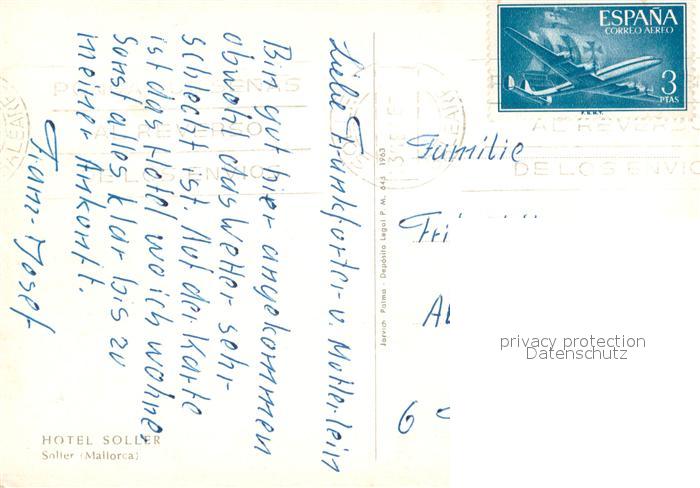 Liebe Frankforter u. Mutterlein
Bin gut hier angekommen
obwohl das Wetter sehr
schlecht ist. Auf der Karte
ist das Hotel wo ich wohne,
Sonst alles klar bis zu
meiner Ankonft.
Franz-Josef
HOTEL SOLLER
Soller (Mallorca)
Jorvich - Palma - Depósito Legal P. M. 643 1963
ESPAÑA
CORREO AEREO
3
PTAS
SEÑAS
AL REVERSO
DE LOS ENVIOS
AL REVERSO
DE LOS ENVIO
Familie
privacy protection
Datenschutz
6